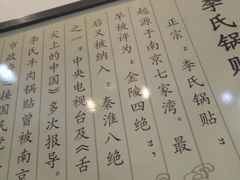 李氏锅贴
正宗“李氏锅贴”
起源于南京七家湾。最
早被评为“金陵四绝”,
后又被纳入“秦淮八绝
之一”。中央电视台及《舌
尖上的中国》多次报导。
李氏牛肉锅贴曾被南京
市政接国民党